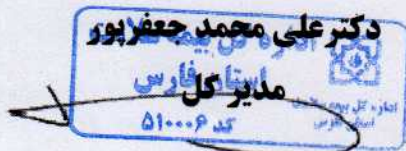 دکتر علی محمد جعفرپور
اداره کل بیمه سلامت
استان فارس
مدیر کل
اداره کل بیمه سلامت
استان فارس
کد ۵۱۰۰۰۶